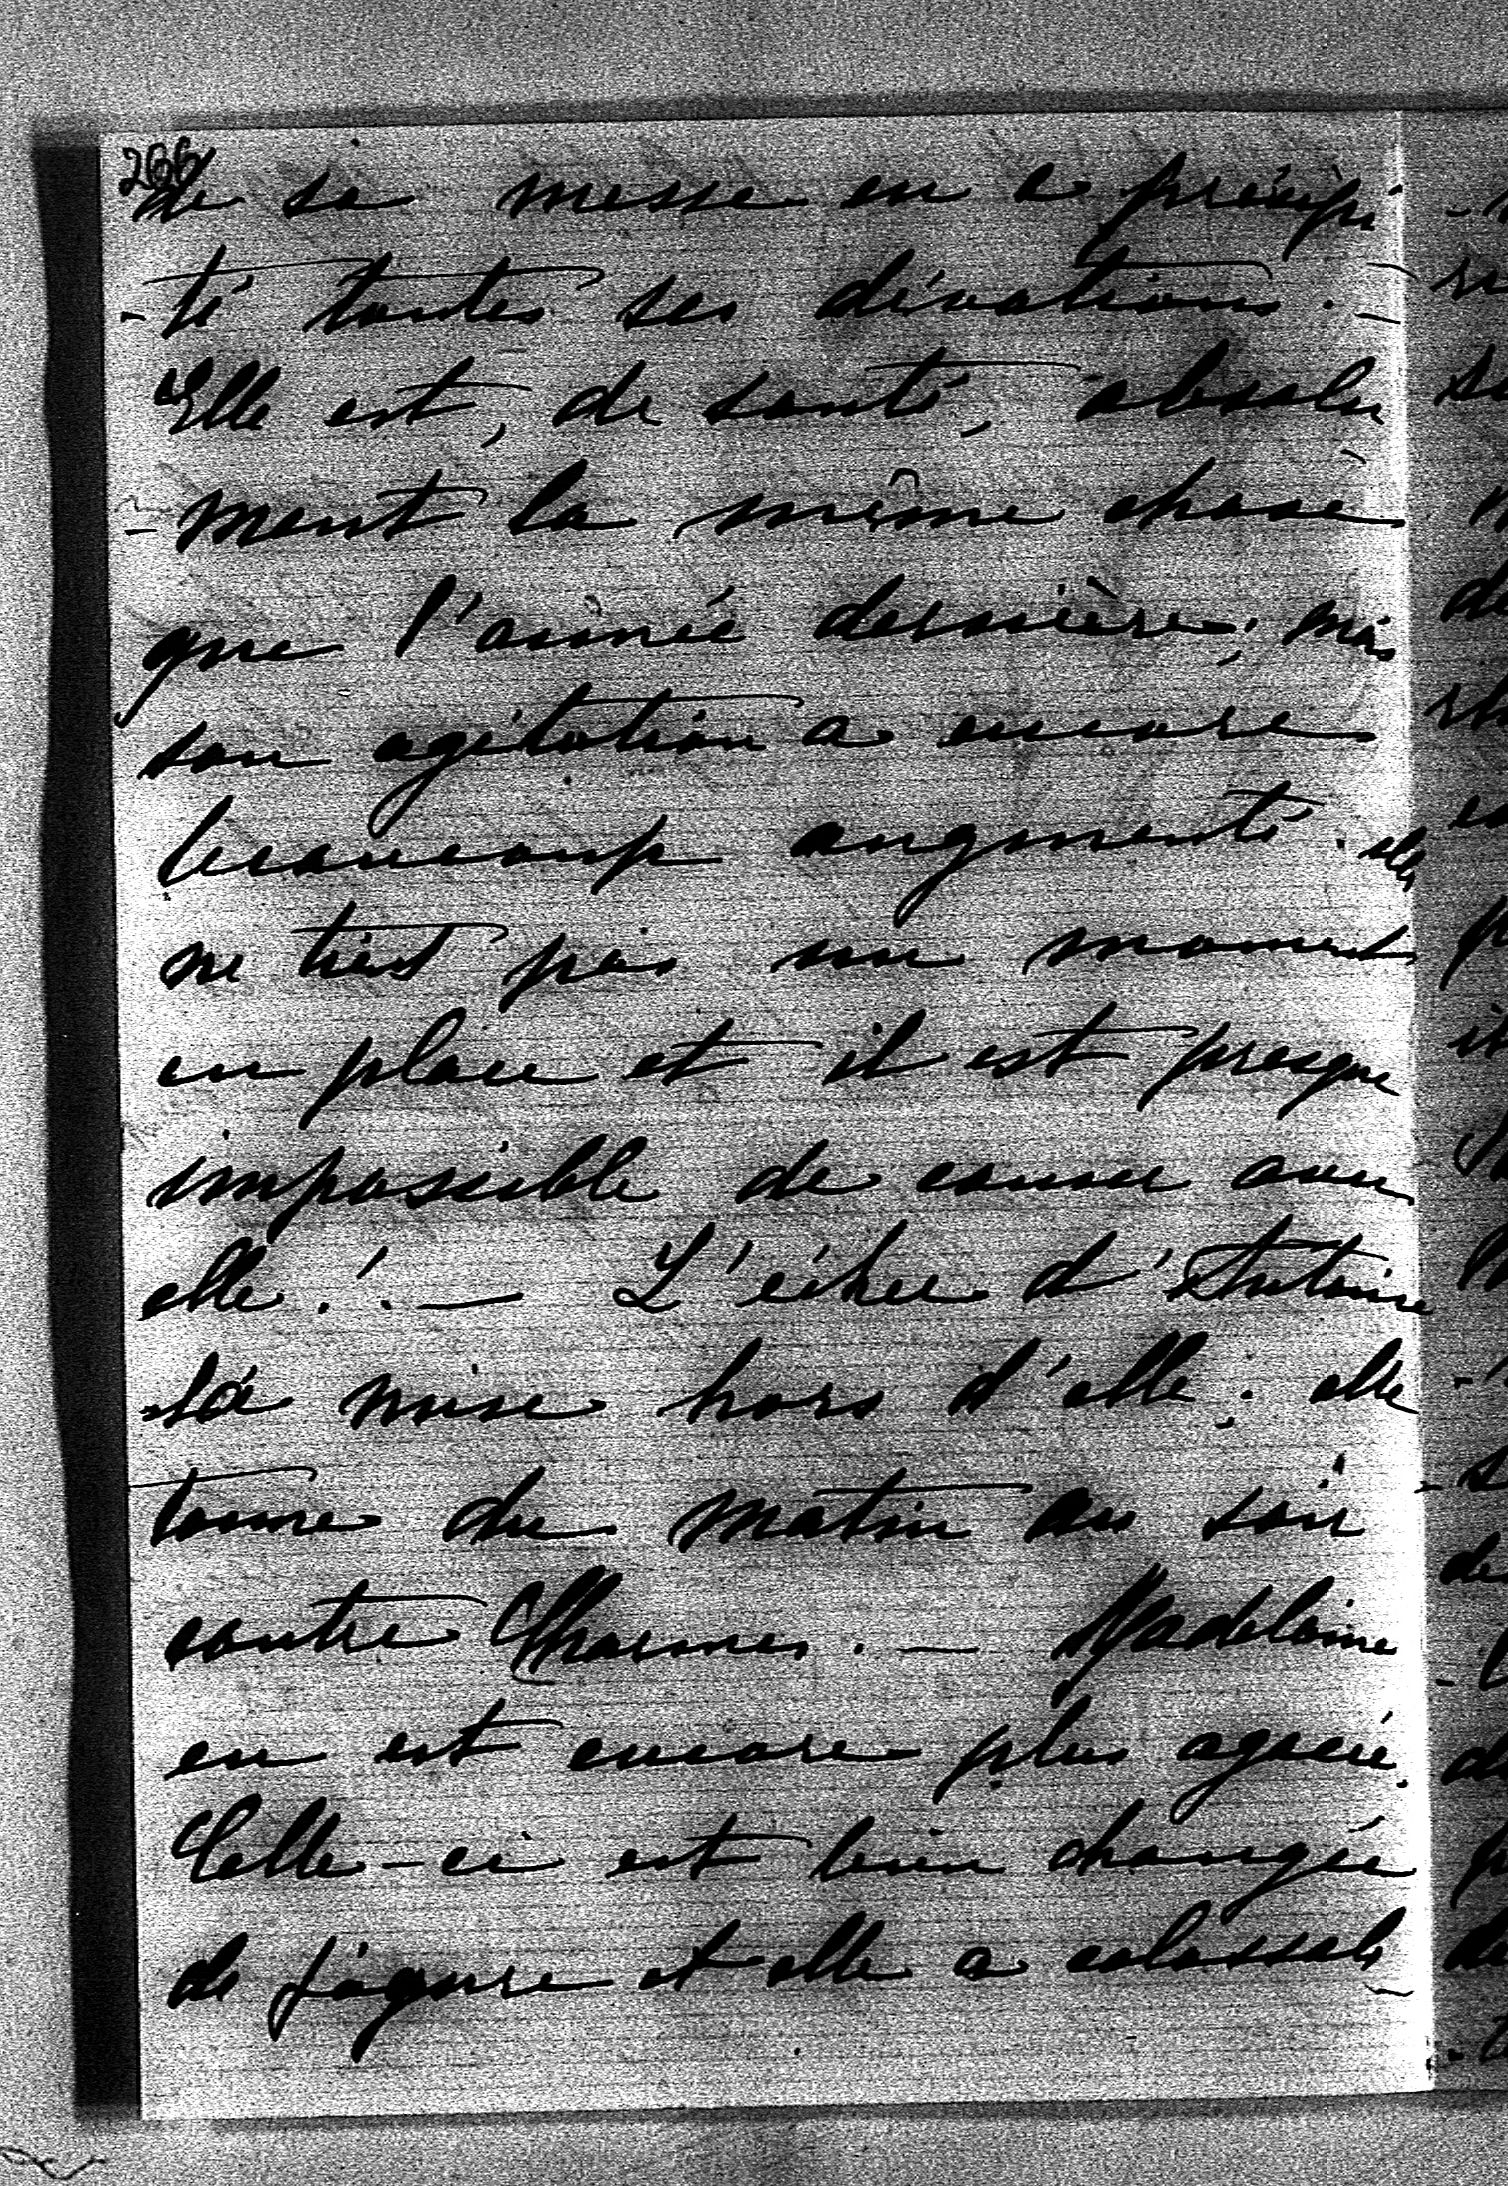 266
de sa messe en a précipi-
-té toutes ses dévotions. -
Elle est, de santé, absolu
-ment la même chose
que l'année dernière; mais
son agitation a encore
beaucoup augmenté. elle
ne tient pas un moment
en place et il est presque
impossible de causer avec
elle! — L'échec d'Antoine
l'a mise hors d'elle; elle
tonne du matin au soir
contre Charmes. — Madeleine
en est encore plus agacée.
Celle-ci est bien changée
de figure et elle a colossale-